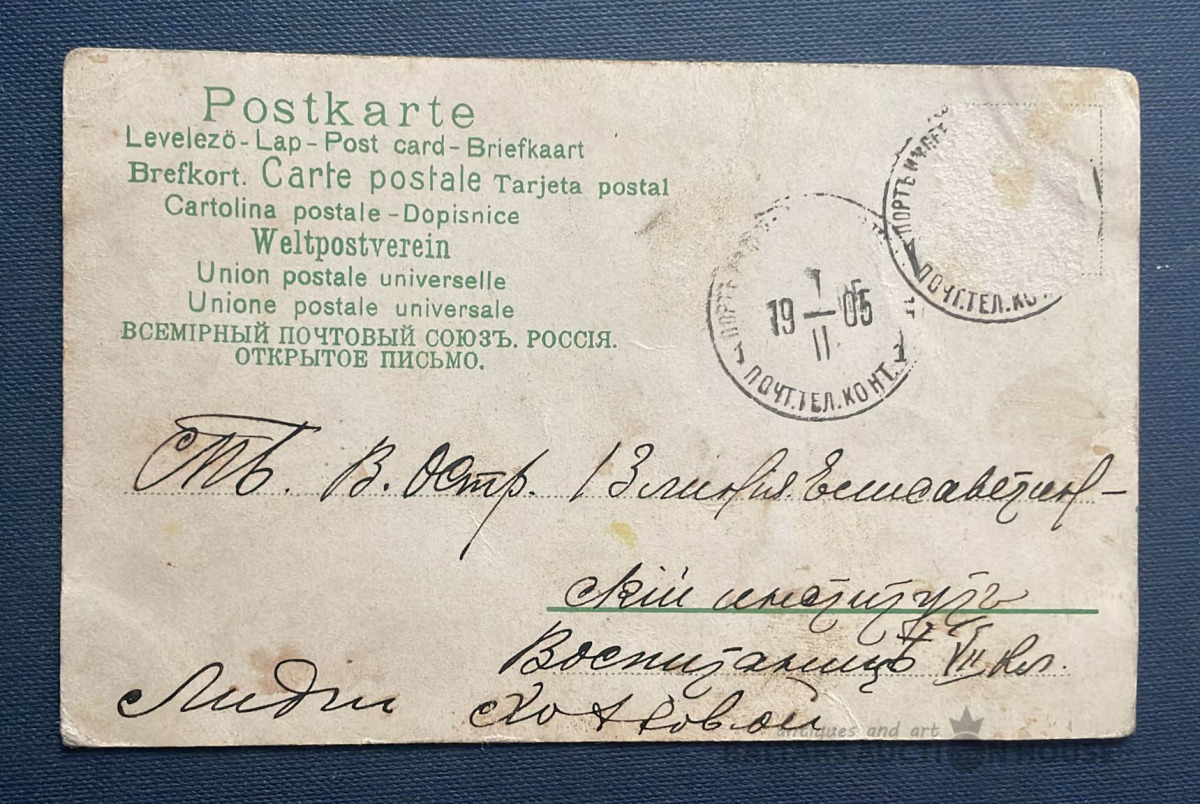 Postkarte
Levelező - Lap - Post card - Briefkaart
Brefkort. Carte postale Tarjeta postal
Cartolina postale - Dopisnice
Weltpostverein
Union postale universelle
Unione postale universale
ВСЕМІРНЫЙ ПОЧТОВЫЙ СОЮЗЪ. РОССІЯ.
ОТКРЫТОЕ ПИСЬМО.
ПОРТЪ
ПОЧТ.ТЕЛ.КО
ПОРТЪ
1
19 — 05
II
ПОЧТ.ТЕЛ.КОНТ.
СПБ. В. Остр. 13 линія Елисаветин-
скій институтъ
Воспитаницѣ VII кл.
Лидіи
antiques and art